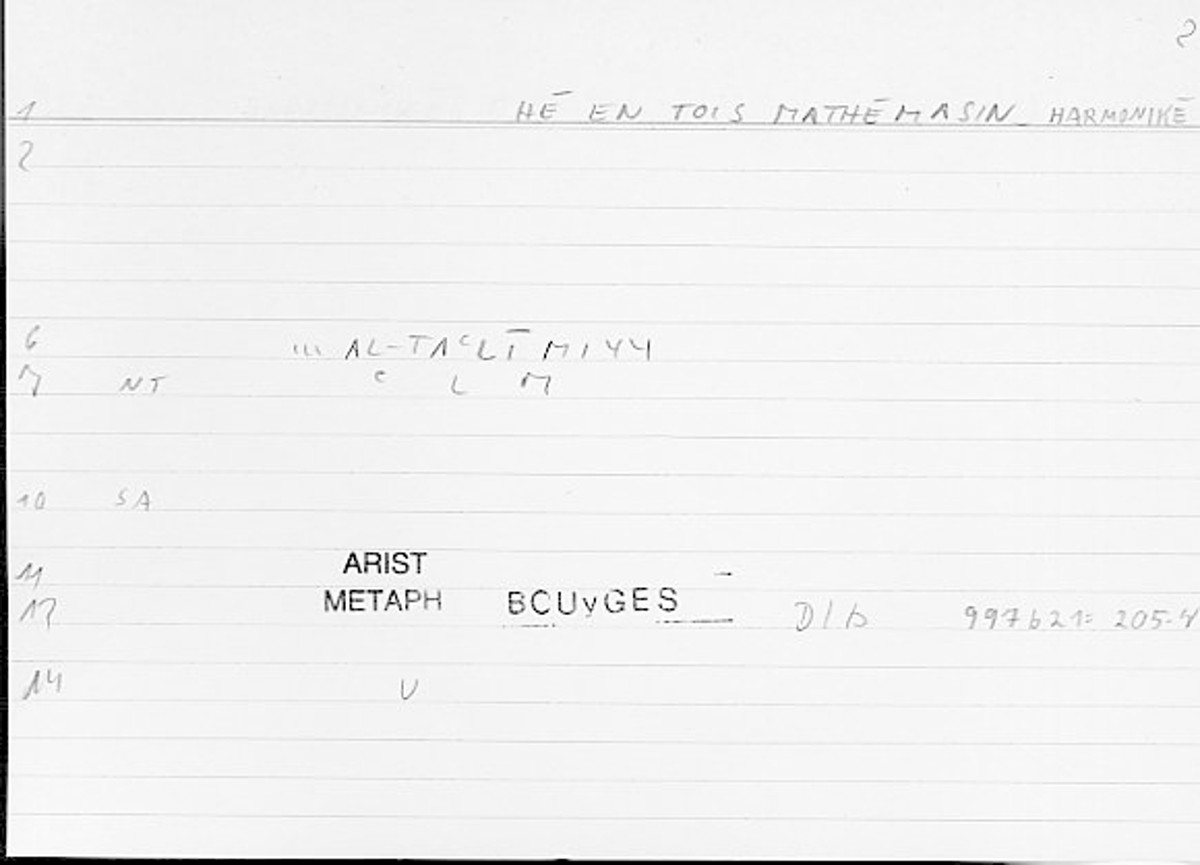 2
1 HĒ EN TOIS MATHĒMASIN HARMONIKĒ
2
6 ... AL-TAʿLĪMIYY
7 NT ʿ L M
10 SA
11 ARIST
12 METAPH BOUyGES D/b 997b21= 205.4
14 V